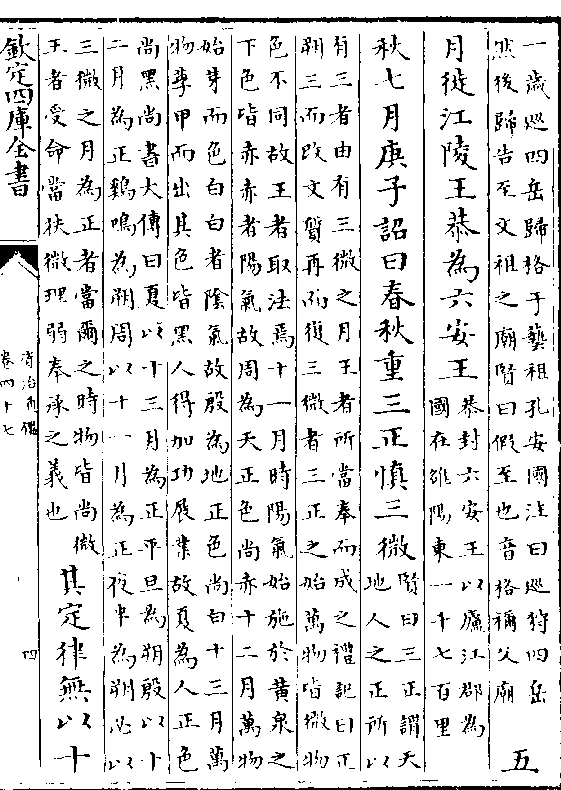 一歲廵四岳歸格于藝祖孔安國注曰廵狩四岳
然後歸告至文祖之廟賢曰假至也音格禰父廟
五
月徙江陵王恭為六安王
恭封六安王以廬江郡為
國在雒陽東一十七百里
秋七月庚子詔曰春秋重三正慎三微
賢曰三正謂天
地人之正所以
有三者由有三微之月王者所當奉而成之禮記曰正
朔三而改文質再而復三微者三正之始萬物皆微物
色不同故王者取法焉十一月時陽氣始施於黄泉之
下色皆赤赤者陽氣故周為天正色尚赤十二月萬物
始芽而色白白者陰氣故殷為地正色尚白十三月萬
物孚甲而出其色皆黑人得加功展業故夏為人正色
尚黑尚書大傳曰夏以十三月為正平旦為朔殷以十
二月為正雞鳴為朔周以十一月為正夜半為朔必以
三微之月為正者當爾之時物皆尚微
王者受命當扶微理弱奉承之義也
其定律無以十
欽定四庫全書
資治通鑑
卷四十七
四